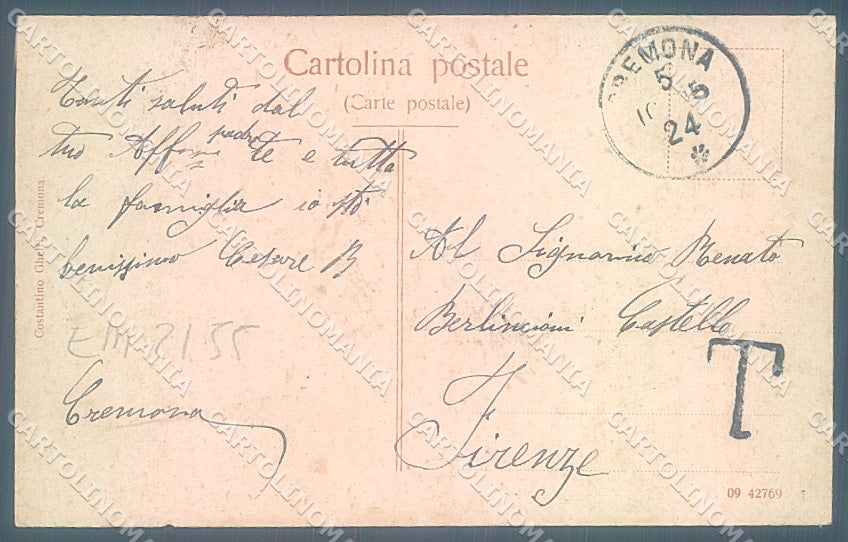 Cartolina postale
(Carte postale)
CREMONA
5 5
10
24
Tanti saluti dal
tuo Aff padre te e tutta
la famiglia io stò
benissimo Cesare B
Cremona
Al Signorino Renato
Berlincioni Castello
Firenze
T
Costantino Ghelfi, Cremona.
09 42769
CARTOLINOMANIA